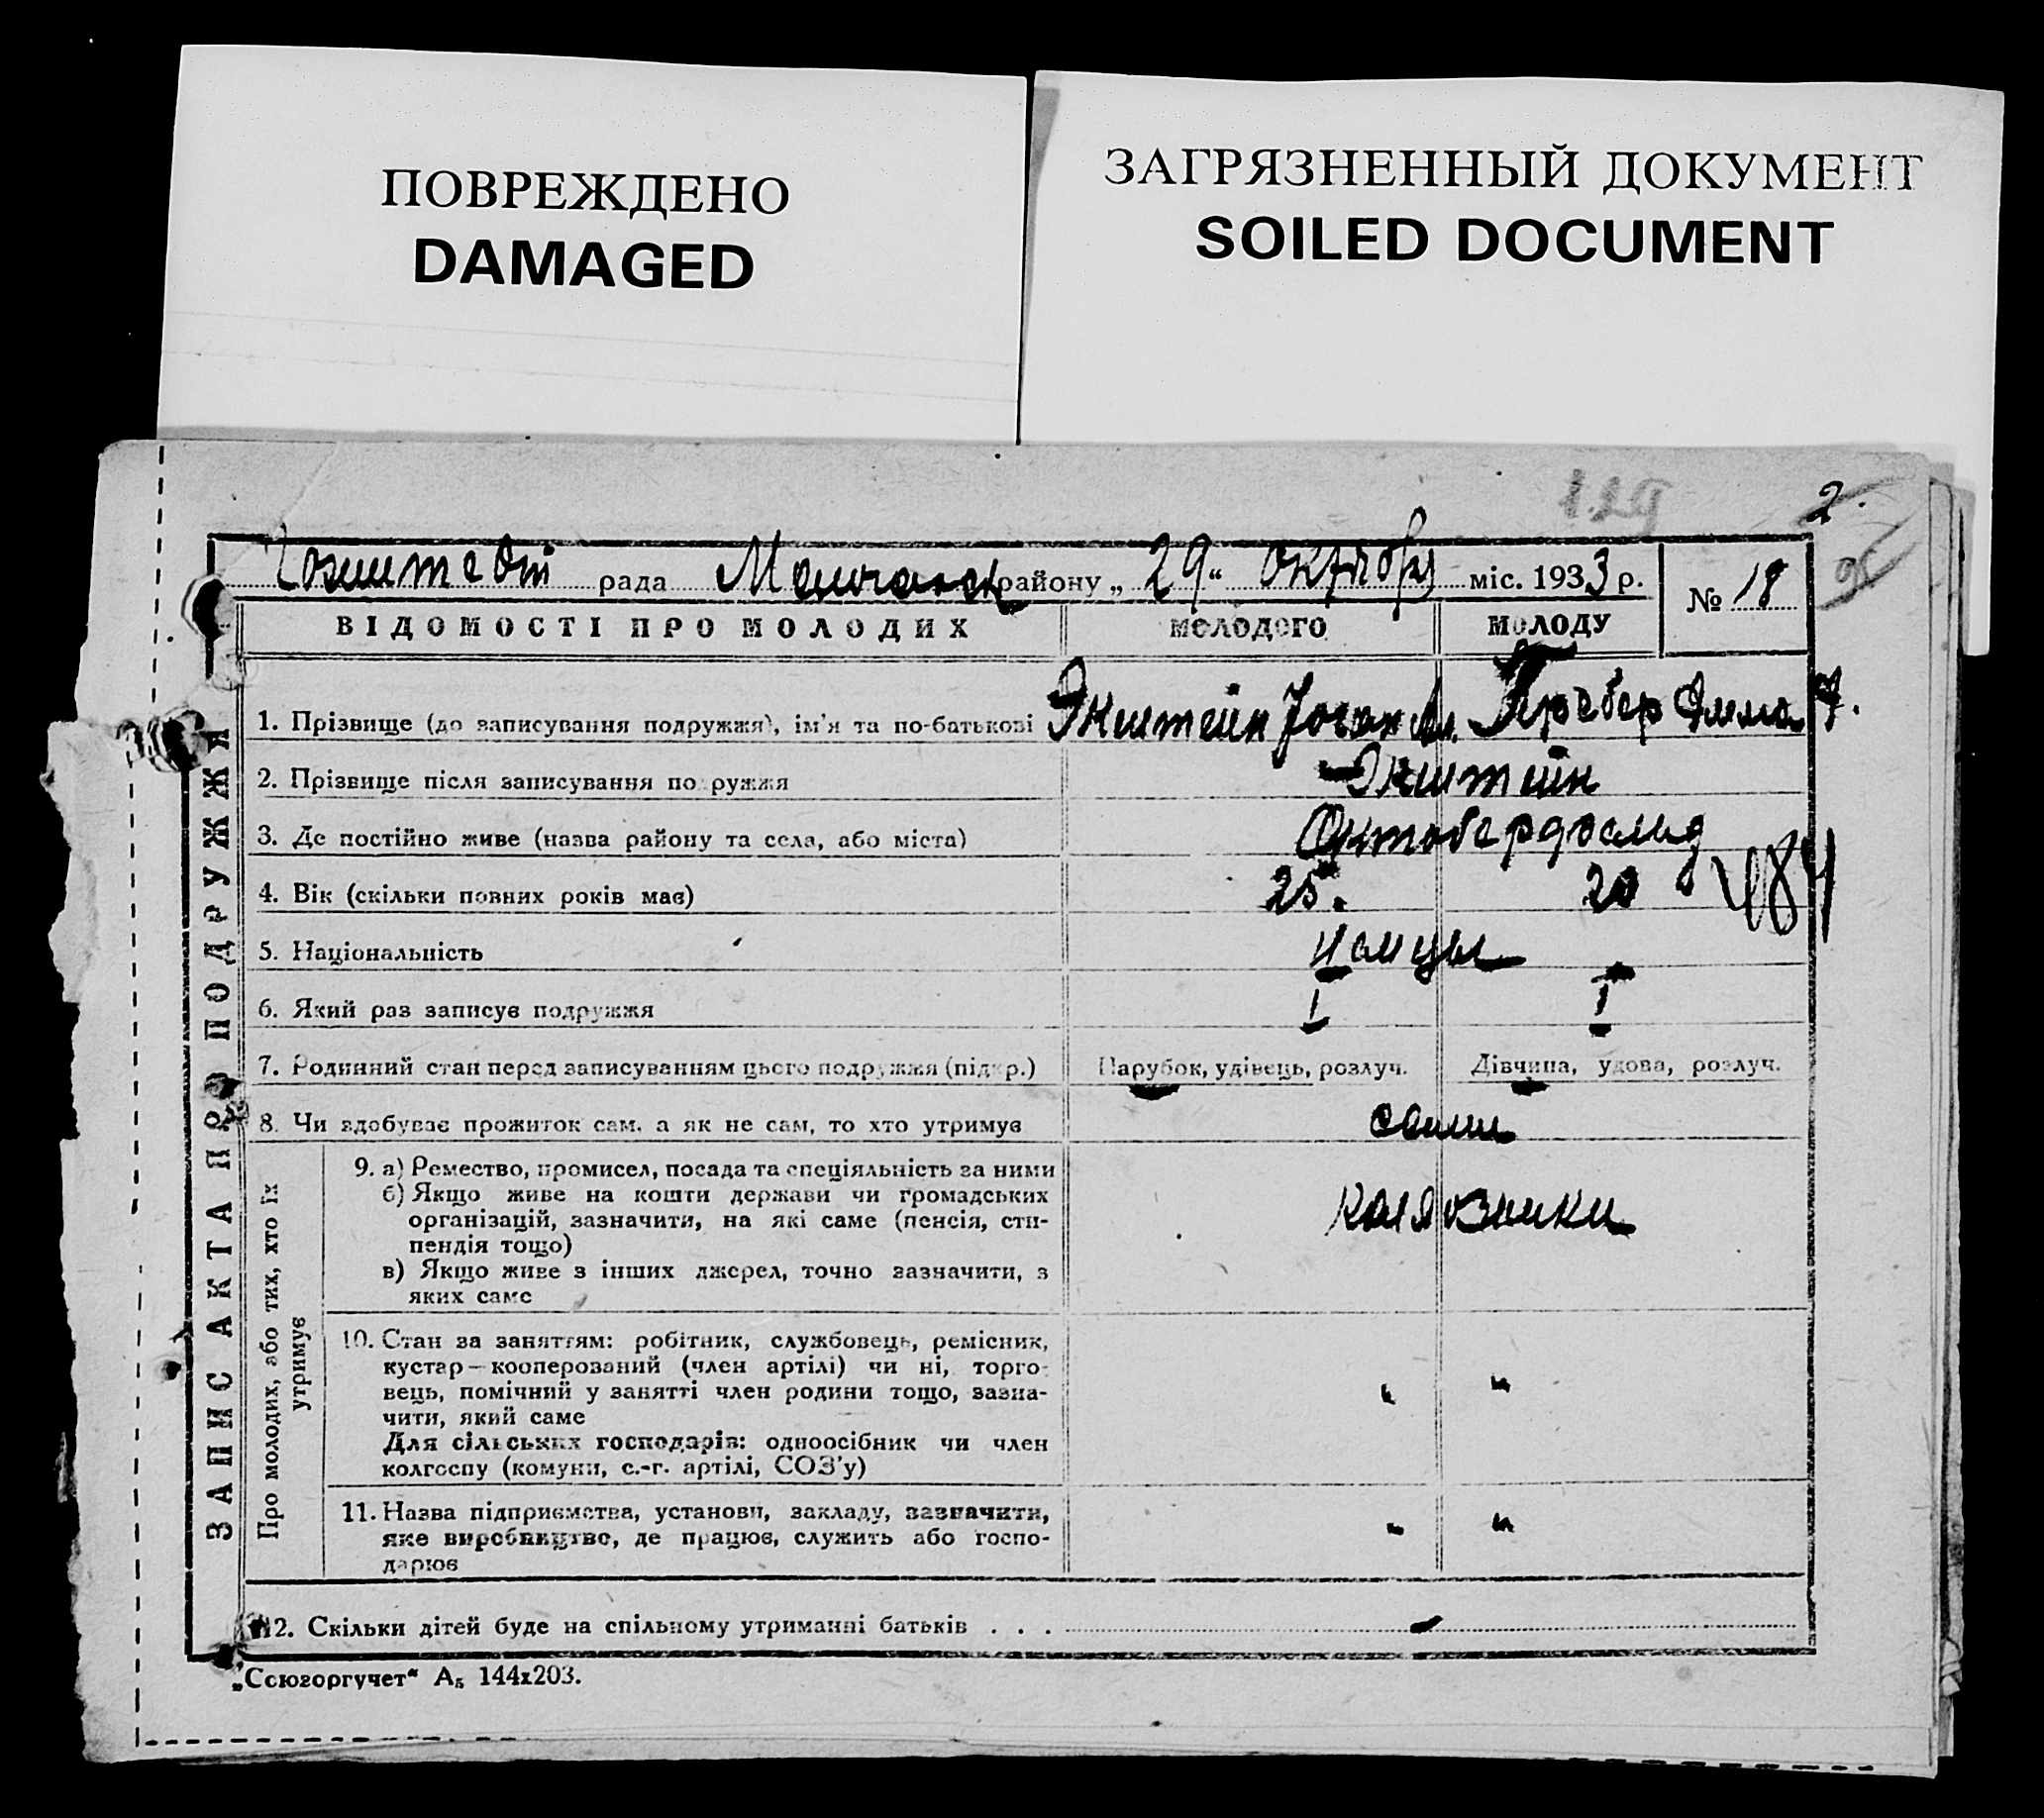 ПОВРЕЖДЕНО
DAMAGED
ЗАГРЯЗНЕННЫЙ ДОКУМЕНТ
SOILED DOCUMENT
129
2.
рада Молочанск району „ 29 " октября міс. 1933 р.
№ 18
ВІДОМОСТІ ПРО МОЛОДИХ
МОЛОДОГО
МОЛОДУ
ЗАПИС АКТА ПРО ПОДРУЖЖЯ
1. Прізвище (до записування подружжя), ім'я та по-батькові Экштейн Гербер Эмма
2. Прізвище після записування подружжя Экштейн
3. Де постійно живе (назва району та села, або міста)
4. Вік (скільки повних років має) 25. 20
484
5. Національність немцы
6. Який раз записує подружжя I I
7. Родинний стан перед записуванням цього подружжя (підкр.) Парубок, удівець, розлуч. Дівчина, удова, розлуч.
8. Чи здобуває прожиток сам, а як не сам, то хто утримує сами
Про молодих, або тих, хто їх
утримує
9. а) Ремество, промисел, посада та спеціяльність за ними
б) Якщо живе на кошти держави чи громадських
організацій, зазначити, на які саме (пенсія, сти-
пендія тощо)
в) Якщо живе з інших джерел, точно зазначити, з
яких саме
10. Стан за заняттям: робітник, службовець, ремісник,
кустар—кооперований (член артілі) чи ні, торго-
вець, помічний у занятті член родини тощо, зазна-
чити, який саме
Для сільських господарів: одноосібник чи член
колгоспу (комуни, с.-г. артілі, СОЗ'у)
" "
11. Назва підприємства, установи, закладу, зазначити,
яке виробництво, де працює, служить або госпо-
дарює
" "
12. Скільки дітей буде на спільному утриманні батьків . . . -
„Союзоргучет" А₅ 144x203.